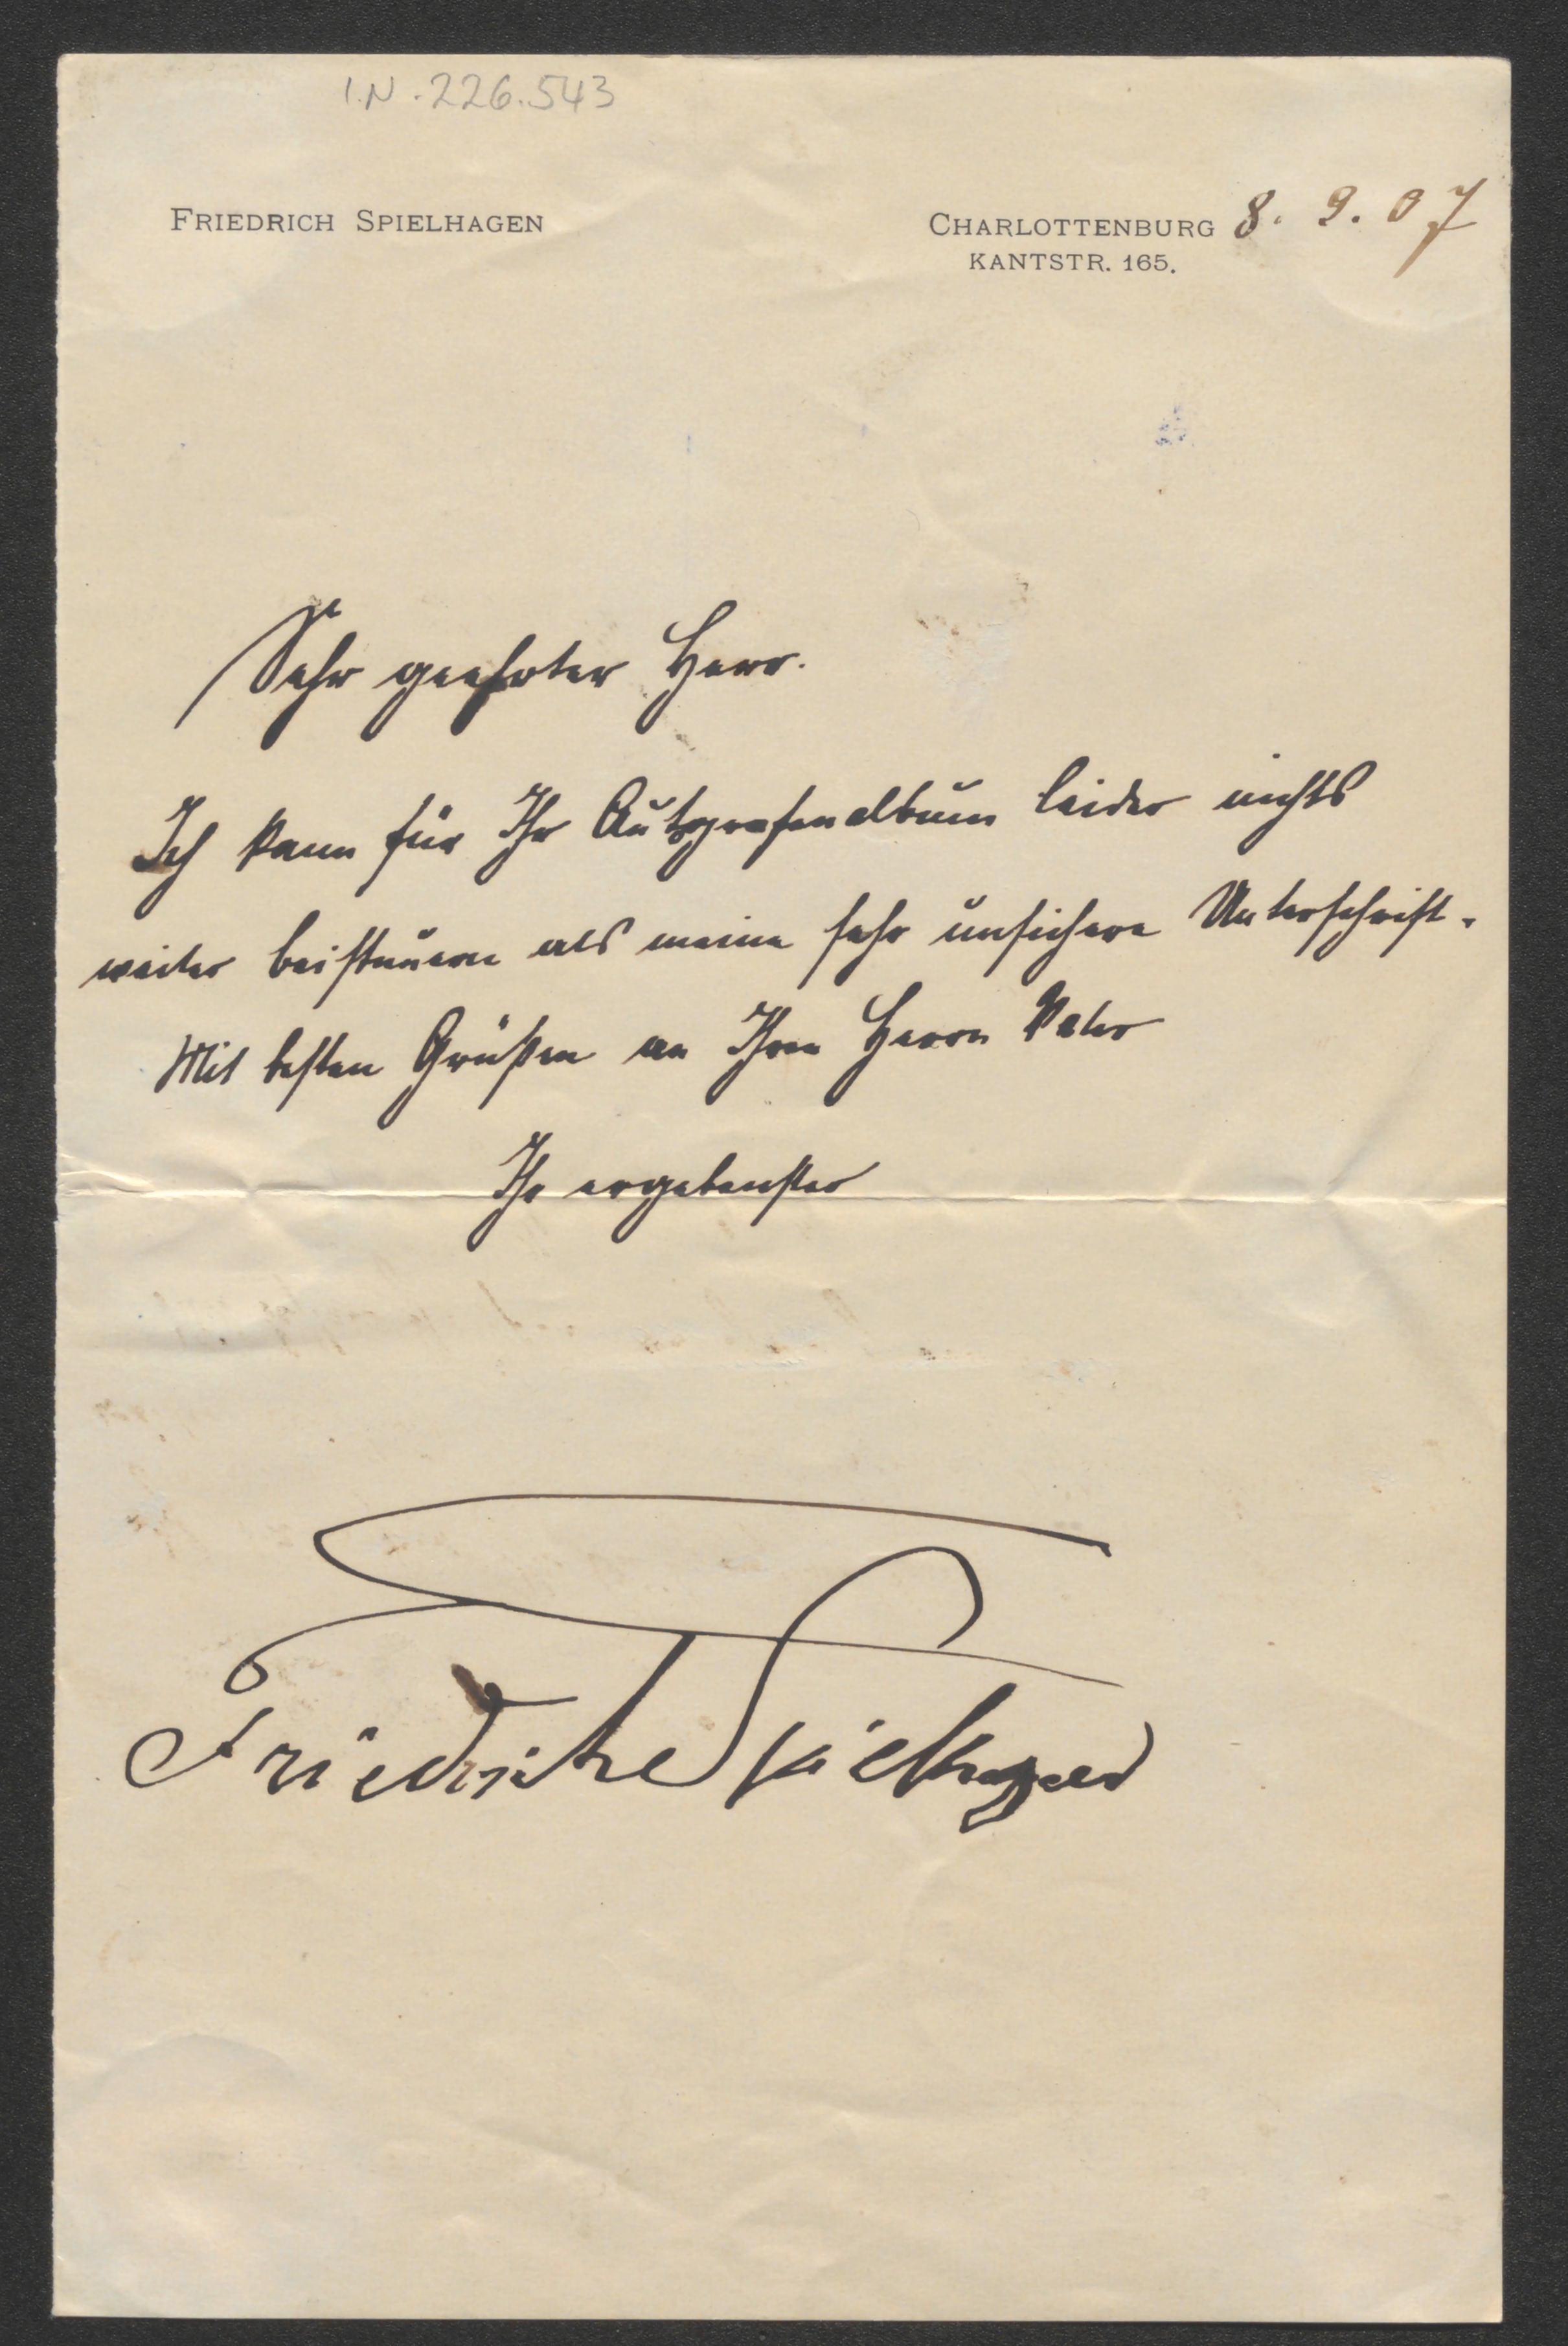 I.N.226.543
FRIEDRICH SPIELHAGEN
CHARLOTTENBURG 8. 9. 07
KANTSTR. 165.
Sehr geehrter Herr.
Ich kann für Ihr Autografenalbum leider nichts
weiter beisteuern als meine sehr unsichere Unterschrift.
Mit besten Grüßen an Ihren Herrn Vater
Ihr ergebenster
Friedrich Spielhagen